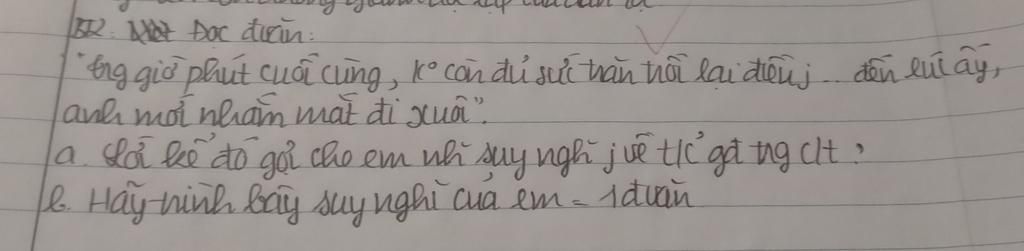 B2. Đọc đ.văn:
"Trg giờ phút cuối cùng, K° còn đủ sức trăn trối lại điều j... đến lúc ấy,
anh mới nhắm mắt đi xuôi".
a. Lời kể đó gợi cho em nhì suy nghĩ j về t/c gđ trg c/t?
b. Hãy trình bày suy nghĩ của em = 1 đ.văn